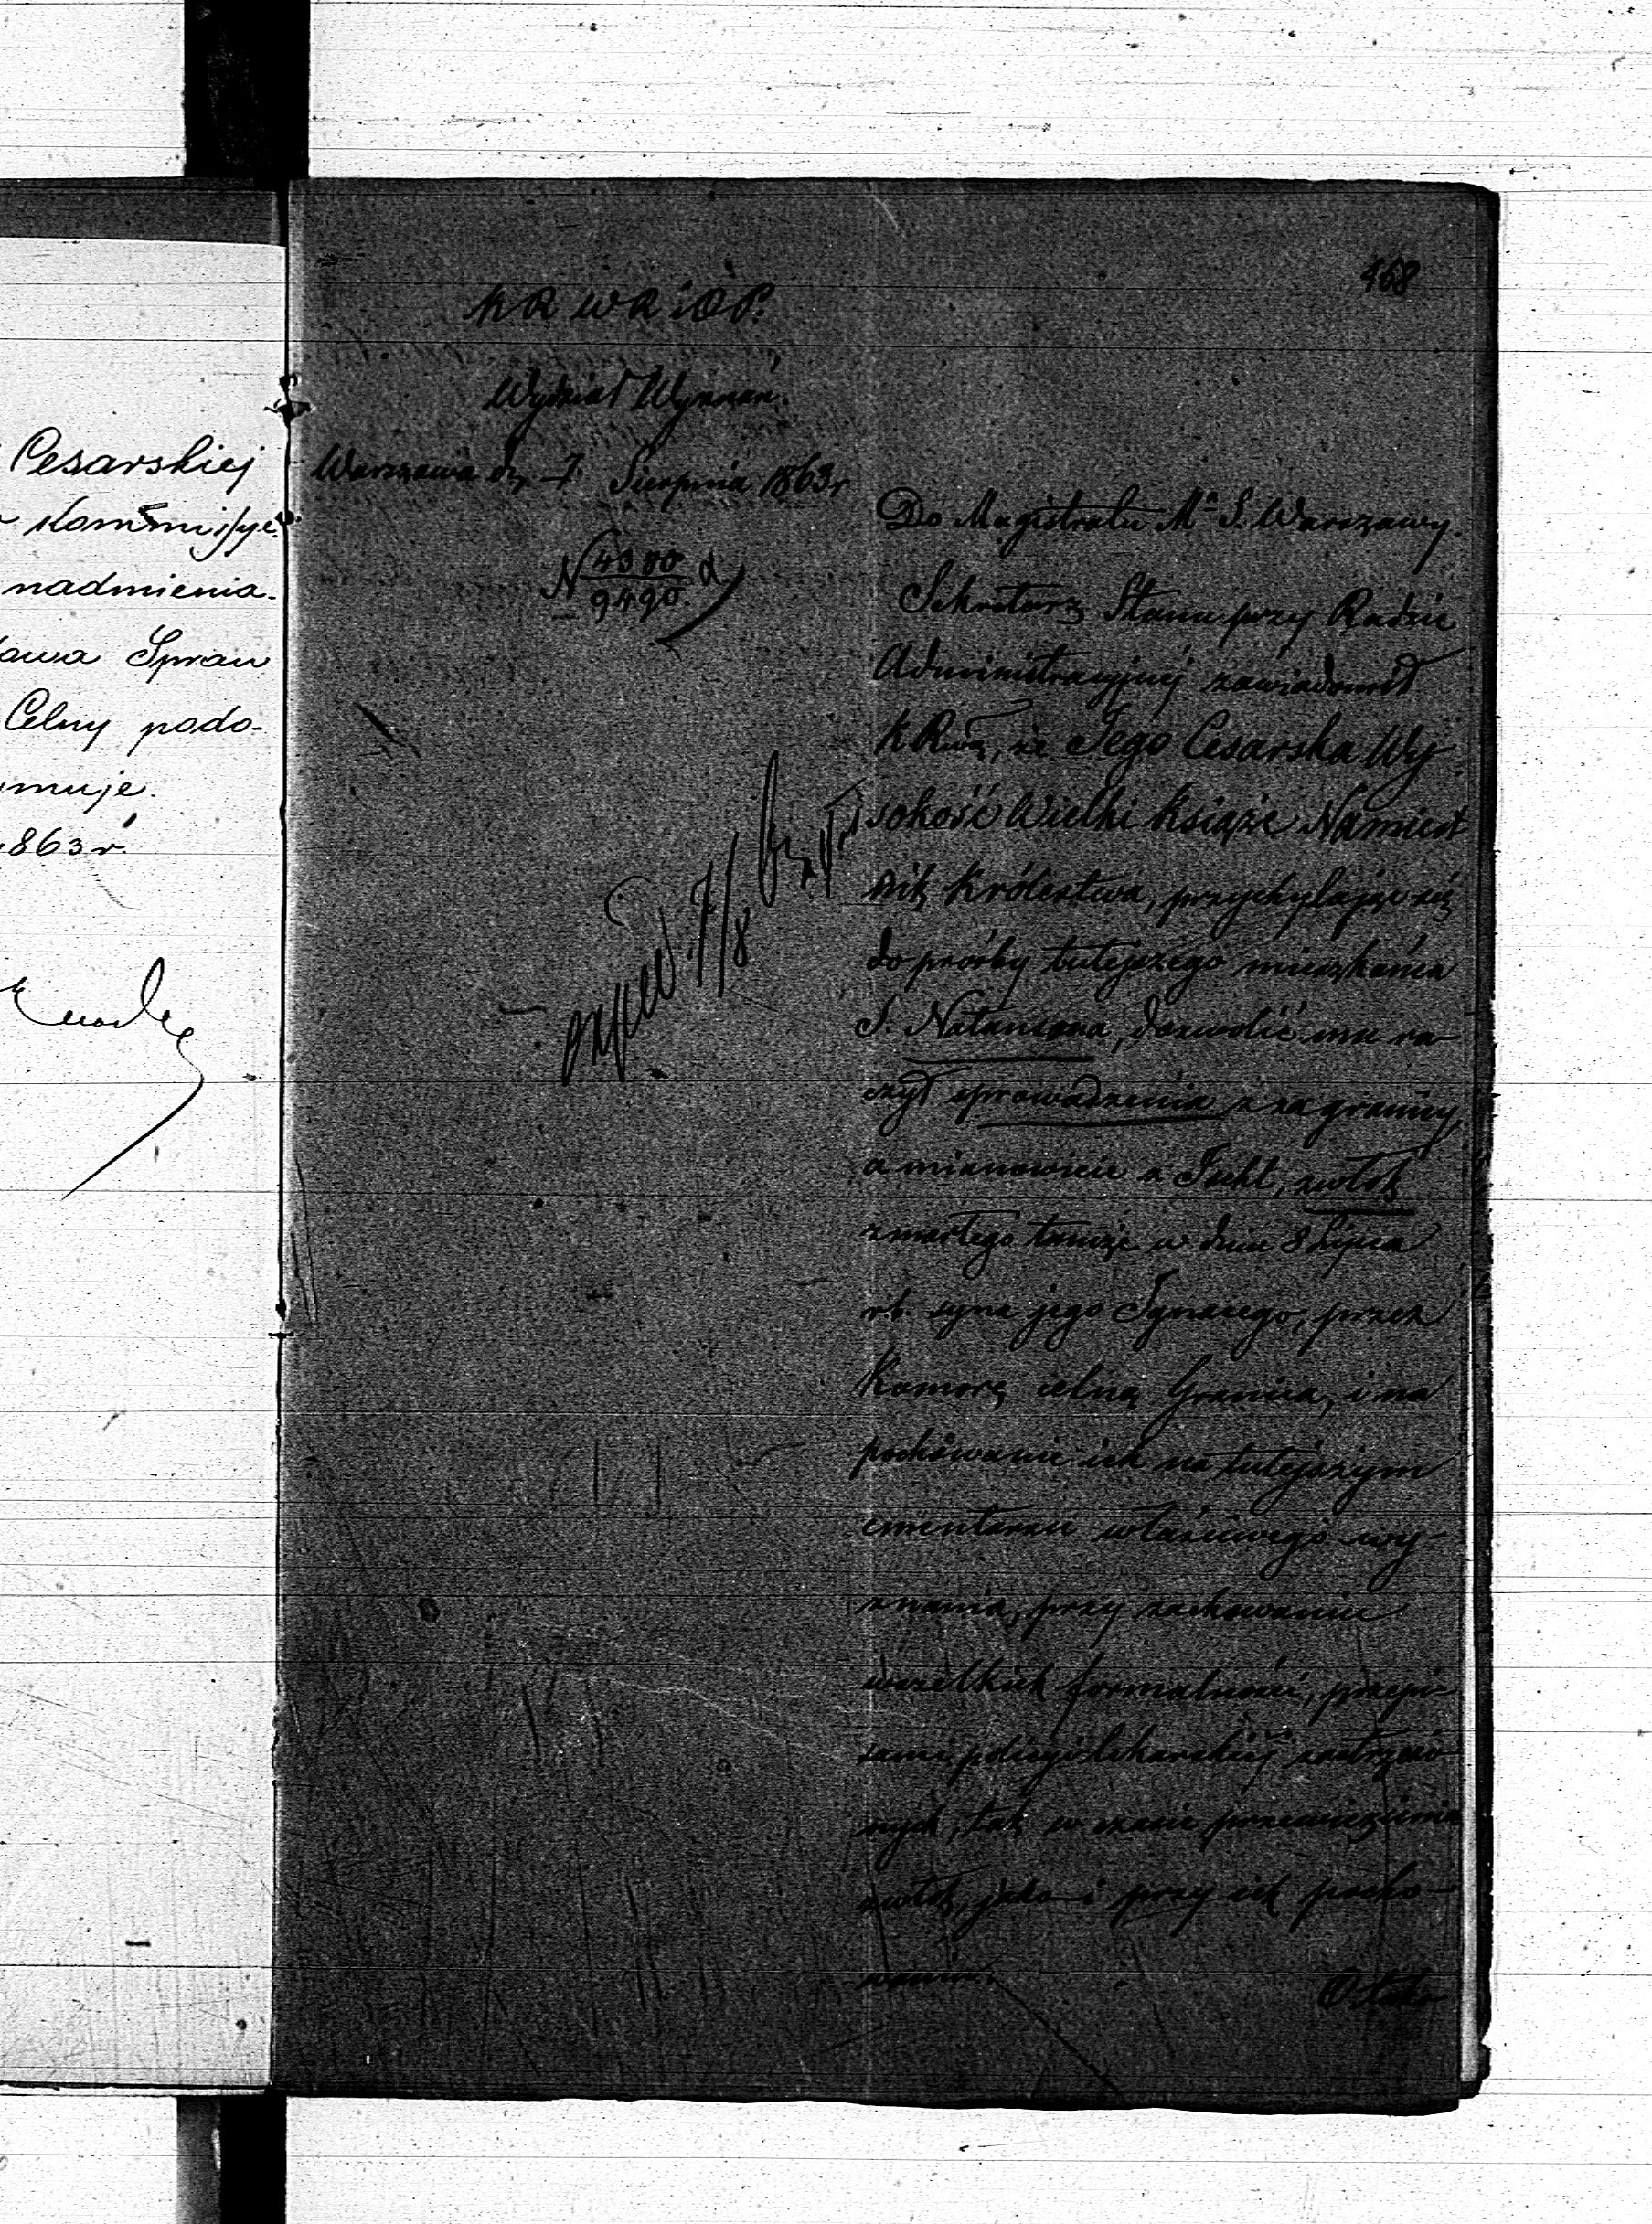 Cesarskiej
Kommissye
nadmienia.
Spraw
Celny podo-
muje.
1863 r.
468
K R W R i O P.
Wydział Wyznań.
Warszawa d. 7 Sierpnia 1863 r
N 4300/9490
7/8
Do Magistratu Mta S. Warszawy.
Sekretarz Stanu przy Radzie
Administracyjnéj zawiadomił
K Rwą, że Jego Cesarska Wy
sokość Wielki Książe Namiest
nik Królestwa, przychylając się
do prośby tutejszego mieszkańca
S. Natansona, dozwolić mu ra-
czył sprowadzenia z zagranicy,
a mianowicie z Ischl, zwłok
zmarłego tamże w dniu 8 Lipca
r.b. syna jego Ignacego, przez
Komorę celną Granica, i na
pochowanie ich na tutejszym
cmentarzu właściwego wy-
znania, przy zachowaniu
wszelkich formalności, przepi-
sami policyi lekarskiéj zastrzeżo-
nych, tak w czasie przewiezienia
zwłok, jako i przy ich pocho-
waniu.
O take